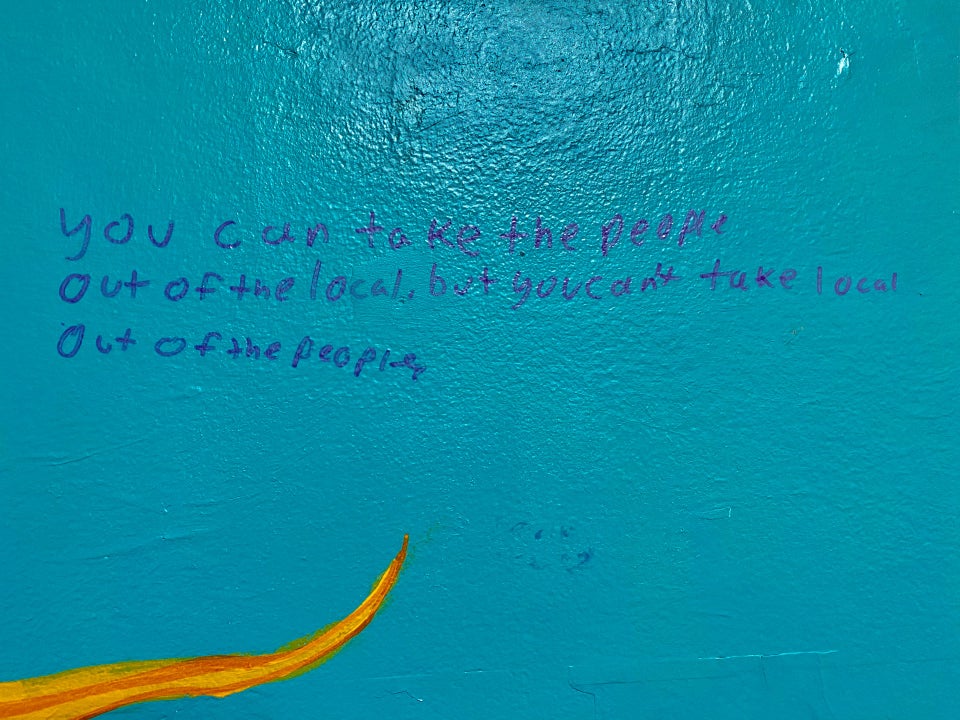 you can take the people
out of the local, but you can't take local
out of the people,